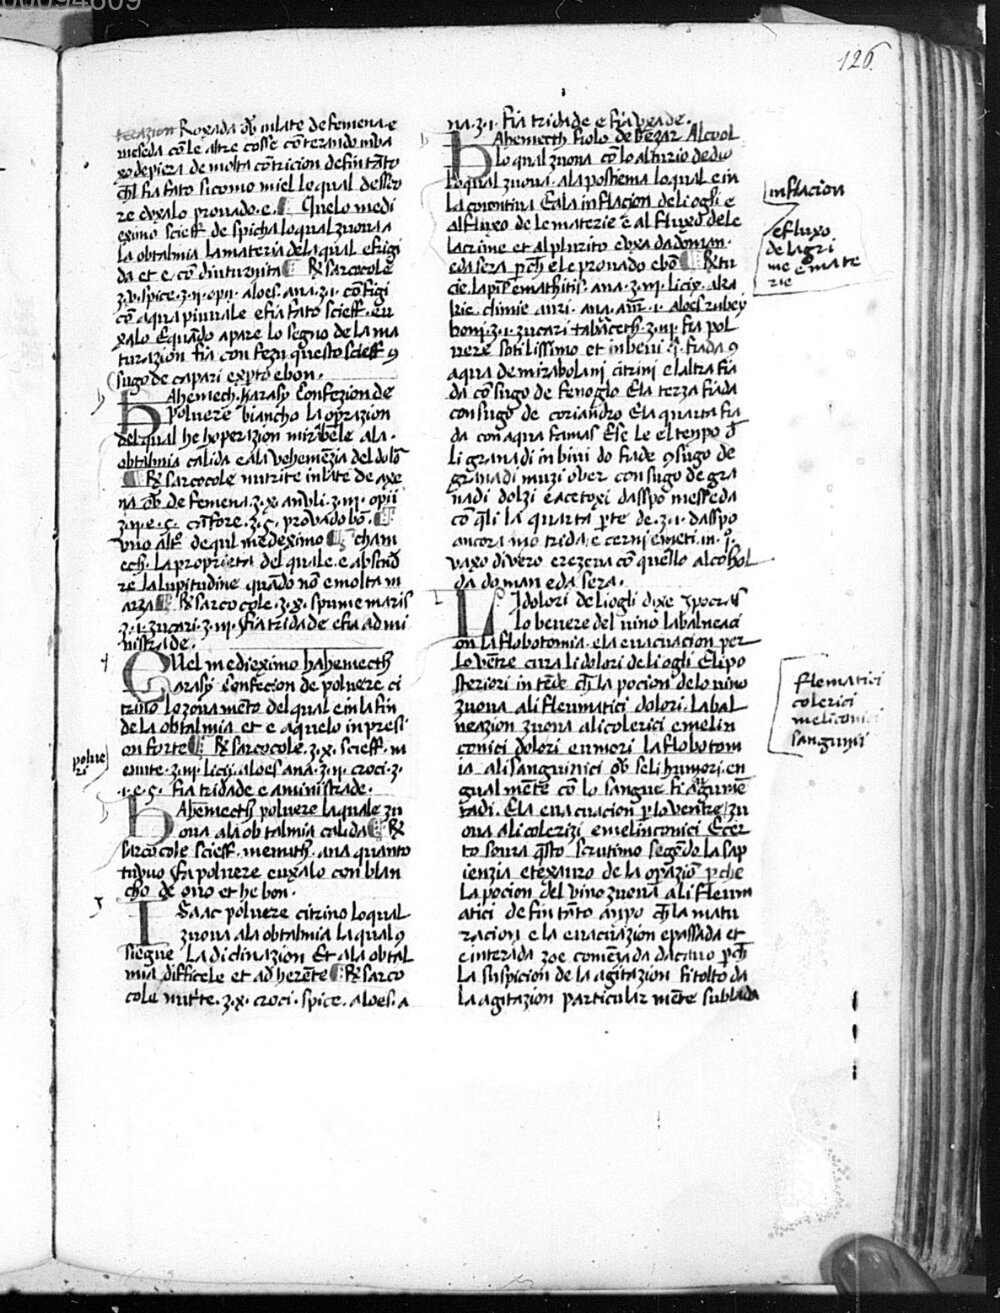 126
Roxada o̅b inlate de femena e
meseda co̅ le altre cosse co̅terando inba
xo depiera de molta co̅tricion de fin ta̅to
ch̅l fia fato sicomo miel lo qual desse
re exalo provado e. Quelo medi
eximo scieff de spicha lo qual zuova a
la obtalmia la materia de la qual e frigi
da et e co̅ diuturnita ℞ sarcocole
z.v. spice .z.ii. opii. aloes. ana .z.i. co̅figi
co̅ aqua piuvale e fia fato scieff. eu
xalo E qua̅do apare lo segno de la ma
turazion fia con fezu questo scieff 9
sugo de capari exp̅to e bon.
h
Ahemech. karasy Confezion de
polvere biancho la op̅razion
del qual he hoperazion mirabele ala
obtalmia calida e ala vehemenzia del dolo̅
℞ sarcocole nutrite in late de axe
na o̅b de femena .z.x. amili .z.iii. opii
z.ii. e .s. ca̅fore .z.s. provado bo̅.
uno alt̅o de quel medeximo ⁊ cham
ech. la proprieta del quale e absterd̅
re la lupitudine qua̅do no̅ e molta in
arza ℞ sarcocole .z.x. spume maris
z.i. zucari .z.iii. fia tridade e fia admi
nistrade.
Quel mediximo hahemecth
karasy Confecion de polvere ci
trino lo zovamento del qual e in la fin
de la obtalmia et e aquelo inpresi
on forte ℞ sarcocole .z.x. scieff. m
emite .z.iii. licii. aloes ana .z.ii. croci .z.
.i. e .s. fia tridade e aministrade.
polve
ri
h
Ahemecth polvere la quale zu
ova ala obtalmia calida ℞
sarcocole scieff. memith. ana quanto
tu vuo fa polvere euxalo con blan
cho de ovo et he bon.
I
Saac polvere citrino lo qual
zuova ala obtalmia la qual 9
siegue la diclinazion Et ala obtal
mia difficele et adherente ℞ sarco
cole nut̅te .z.x. croci. spice. aloes. a
na .z.i. fia tridade e fia uxade.
h
Ahemecth fiolo de bezar Alcool
lo qual zuova co̅ lo alturio de dio
lo qual zuova. ala postiema lo qual e in
la coventina E ala inflacion de li ogli e
al fluxo de le materie e al fluxo de le
lacrime et al plurito euxa da doman
e da sera p̅ch̅ ele provado e bo̅ ℞ tu
cie. lapis emathitis. ana .z.iii. licii. aka
kie. climie auri. ana. aur̅. i. aloes rubey
boni .z.i. zucari tabaceth .z.iii. fia pol
vere sotilissimo et inbevi fiada 9
aqua de mirabolani citrini e laltra fia
da co̅ sugo de fenoglo E la terza fiada
con sugo de coriandro E la quarta fia
da con aqua famas E se le el tenpo d̅
li granadi in bivi do fiade 9 sugo de
granadi muzi over con sugo de gra
nadi dolzi e acetoxi daspo messeda
co̅ q̅li la quarta p̅te de .z.i. daspo
ancora mo trida e cerni e meti in j̅.
vaxo di vero e rezera co̅ quello alcohol
da doman e da sera.
L
I dolori de li ogli dixe ypocras
lo bevere del vino la balneaci
on la flobotomia. e la evacuacion per
lo ve̅tre cura li dolori de li ogli E li po
steriori inte̅de ch̅ la pocion de lo vino
zuova ali fleumatici dolori. la bal
neazion zuova ali colerici e melin
conici dolori e umori la flobotom
ia ali sanguinici o̅b se li humori en
gualmente co̅ lo sangue fi ag̅ume̅
tadi. E la evacuacion p̅ lo ventre zu
ova ali colerizi e melinconici E cer
to sovra q̅sto scrutimo sego̅do la sap
ienzia e texauro de la op̅azio̅ p̅che
la pocion del vino zuova ali fleum
atici de fin ta̅to anpo ch̅ la matu
racion e la evacuazion e passada et
e interada zoe come̅zada da cavo p̅ch̅
la suspicion de la agitazion fi tolto da
la agitazion particular mente sublada
inflacion
e fluxo
de lagri
me e mate
rie
flematici
colerici
meliconici
sanguinii